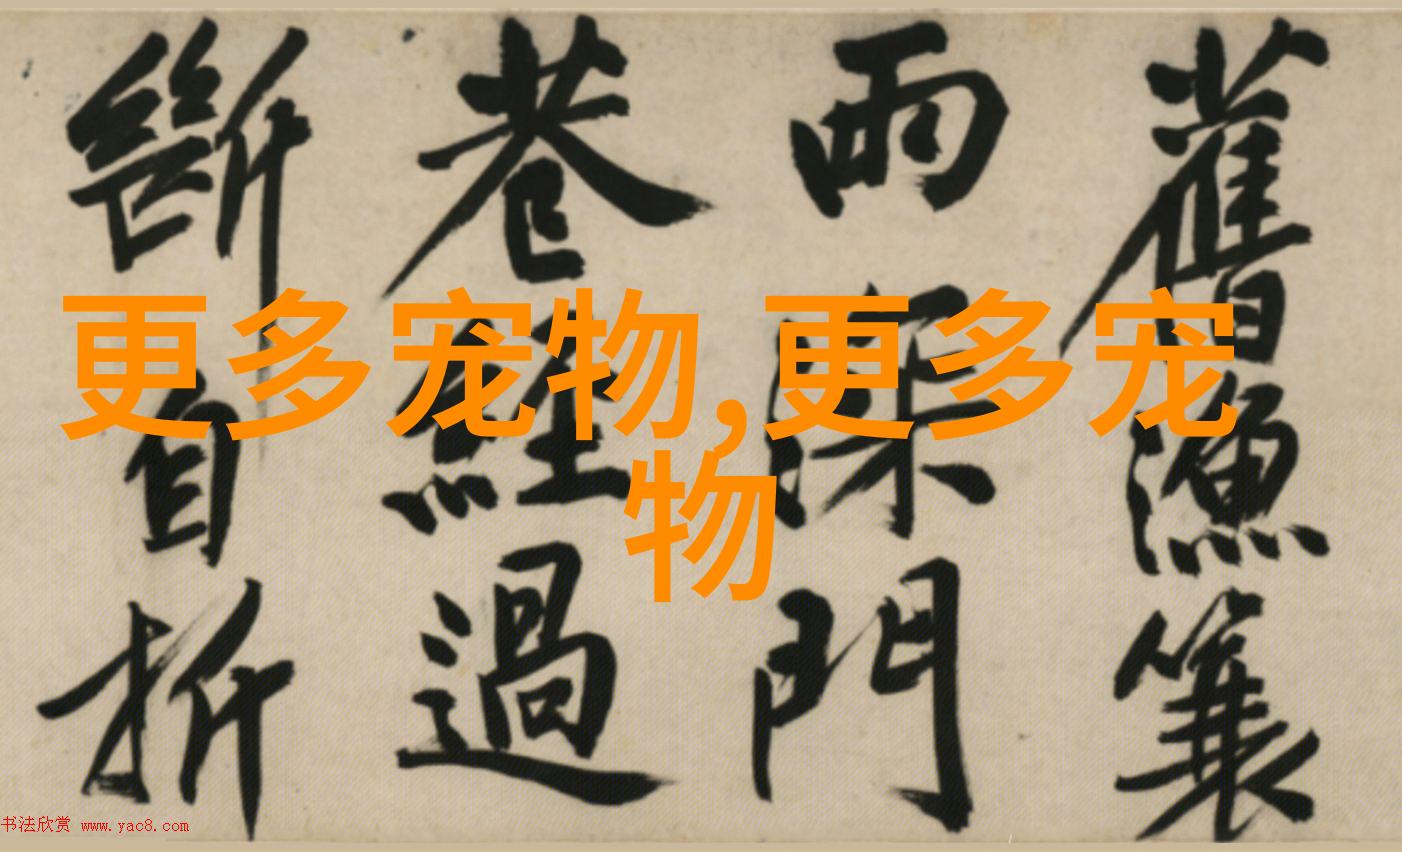 更多宠物,更多宠
物
舊漁簑
雨深門
巷經過
斷自折
书法欣赏 www.yac8.com